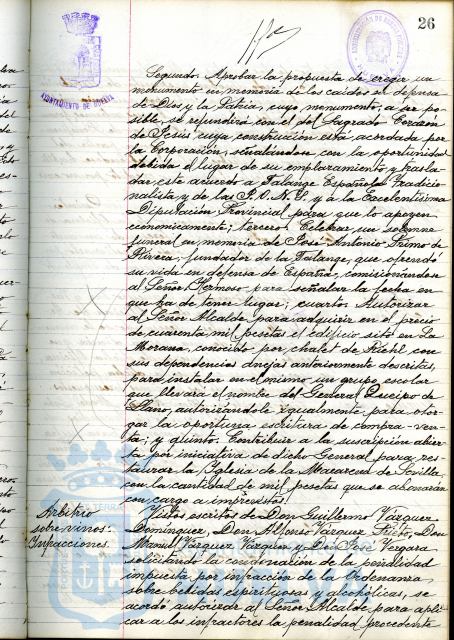 26
AYUNTAMIENTO DE HUELVA
Segundo. Aprobar la propuesta de eregir un
monumento en memoria de los caidos en defensa
de Dios y la Patria, cuyo monumento, a ser po-
sible, se refundirá con el del Sagrado Corazón
de Jesús cuya construcción está acordada por
la Corporación, señalándose con la oportunidad
debida el lugar de su emplazamiento, y trasla-
dar este acuerdo a Falange Española Tradicio-
nalista y de las J.O.N.S. y a la Excelentísima
Diputación Provincial para que lo apoyen
económicamente; tercero. Celebrar un solemne
funeral en memoria de José Antonio Primo de
Rivera, fundador de la Falange, que ofrendó
su vida en defensa de España, comisionándose
al Señor Hermoso para señalar la fecha en
que ha de tener lugar; cuarto. Autorizar
al Señor Alcalde para adquirir en el precio
de cuarenta mil pesetas el edificio sito en La
Morana, conocido por chalet de Riehl con
sus dependencias anejas anteriormente descritas,
para instalar en el mismo un grupo escolar
que llevará el nombre del General Queipo de
Llano, autorizándole igualmente para otor-
gar la oportuna escritura de compra-ven-
ta; y quinto. Contribuir a la suscripción abier-
ta por iniciativa de dicho General para res-
taurar la Iglesia de la Macarena de Sevilla
con la cantidad de mil pesetas que se abonarán
con cargo a imprevistos.
Arbitrio
sobre vinos.
Infracciones.
Vistos escritos de Don Guillermo Vázquez
Domínguez, Don Alfonso Vázquez Prieto, Don
Manuel Vázquez Vázquez y Don José Vergara
solicitando la condonación de la penalidad
impuesta por infracción de la Ordenanza
sobre bebidas espirituosas y alcohólicas, se
acordó autorizar al Señor Alcalde para apli-
car a los infractores la penalidad procedente